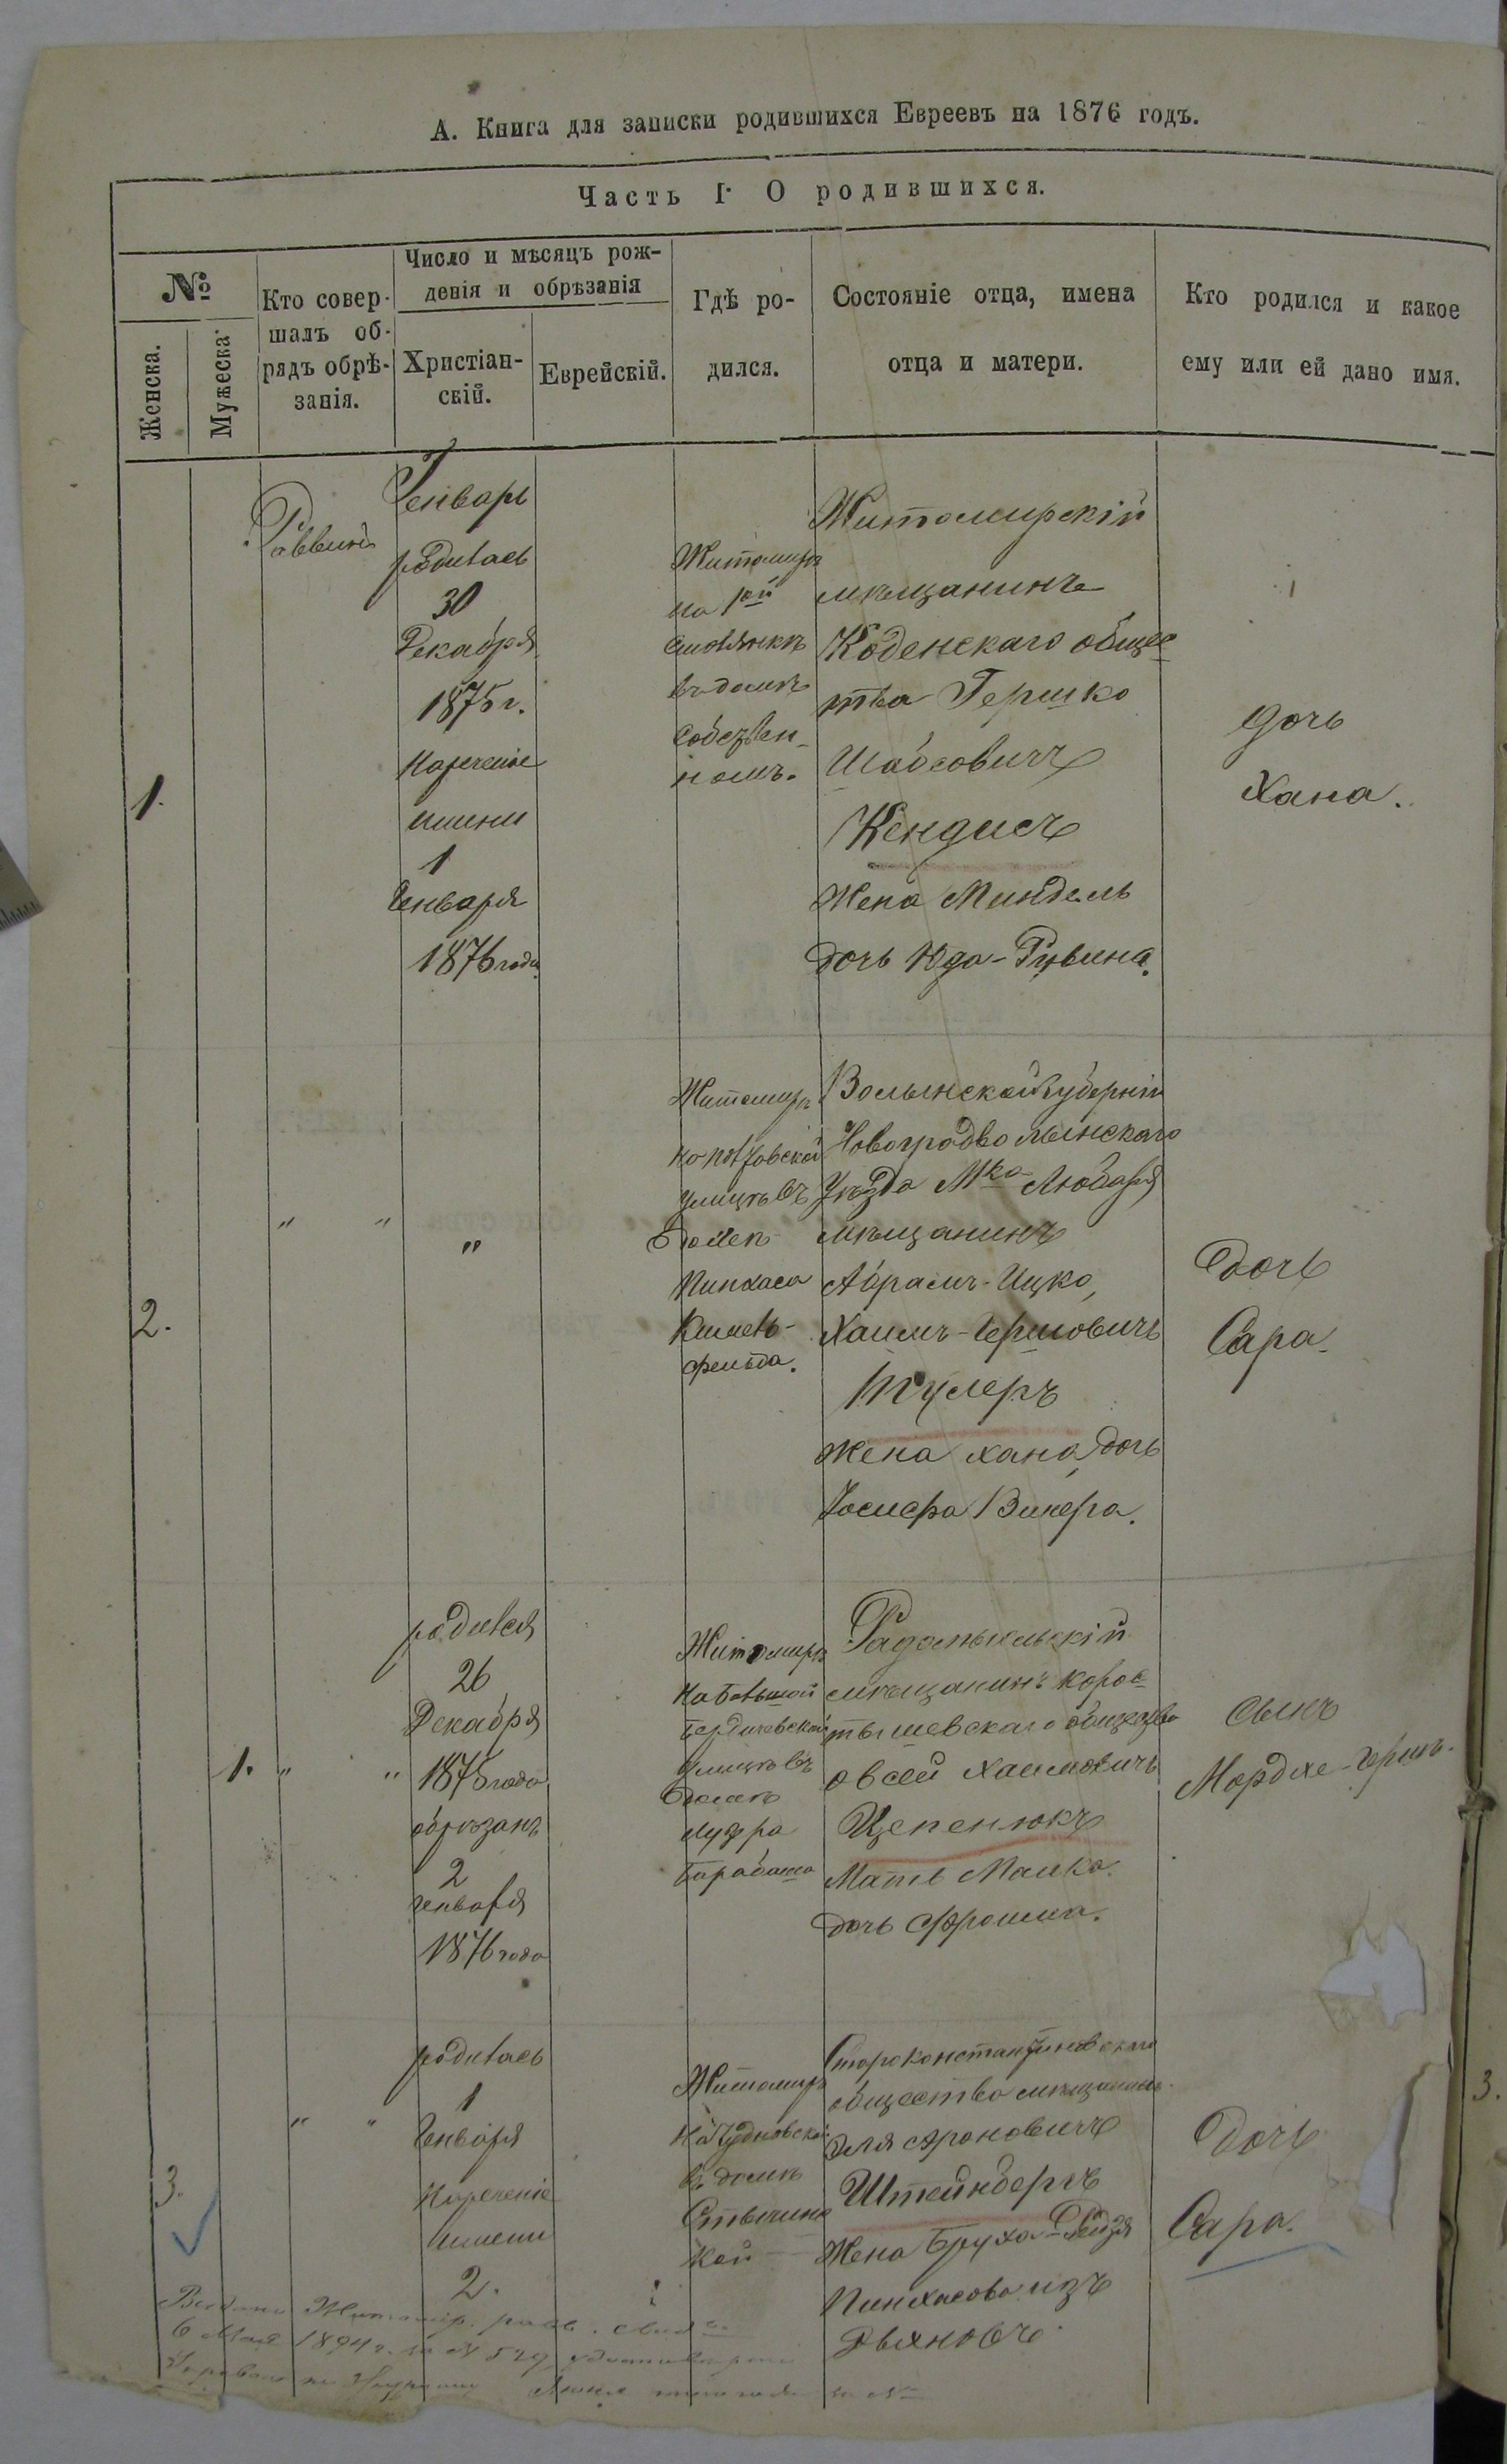 А. Книга для записки родившихся Евреевъ на 1876 годъ.
Часть I. О родившихся.
№
Женска.
Мужеска.
Кто совер-
шалъ об-
рядъ обрѣ-
занія.
Число и мѣсяцъ рож-
денія и обрѣзанія
Христіан-
скій.
Еврейскій.
Гдѣ ро-
дился.
Состояніе отца, имена
отца и матери.
Кто родился и какое
ему или ей дано имя.
1.
Раввинъ
Генварь
родилась
30
Декабря
1875 г.
Нареченіе
имени
1
Генваря
1876 года
Житомиръ
на 1ой
въ домѣ
собствен-
номъ.
Житомирскій
мѣщанинъ
Коденскаго общес
тва Гершко
Шабсовичъ
Кендисъ
Жена Миндель
дочь Юда-Рувина.
дочь
Хана.
2.
" "
"
Житомиръ
улицѣ въ
домѣ
Пинхаса
Кимель-
фельда.
Волынской Губерніи
Новоградволынскаго
Уѣзда Мка Любаря
мѣщанинъ
Абрамъ-Ицко,
Хаимъ-Гершовичъ
Жена Хана, дочь
Іосифа Винера.
Дочь
Сара.
1.
" "
родился
26
Декабря
1875 года
обрѣзанъ
2
Генваря
1876 года
Житомиръ
на Большой
Бердичевской
улицѣ въ
домѣ
Барабаша
Радомысльскій
мѣщанинъ Корос
тышевскаго общества
Овсей Хаимовичъ
Цепенюкъ
Мать Малка
дочь Фроима.
Сынъ
Мордхе-Гершъ.
3.
" "
родилась
1
Генваря
Нареченіе
имени
2.
Житомиръ
на Чудновской
въ домѣ
кой
Староконстантиновскаго
общества мѣщанинъ
Эля Ароновичъ
Штейнбергъ
Жена Бруха-Рейзя
Пинхасова изъ
Дочь
Сара.
6 Мая 1894 г. за № 529
3.